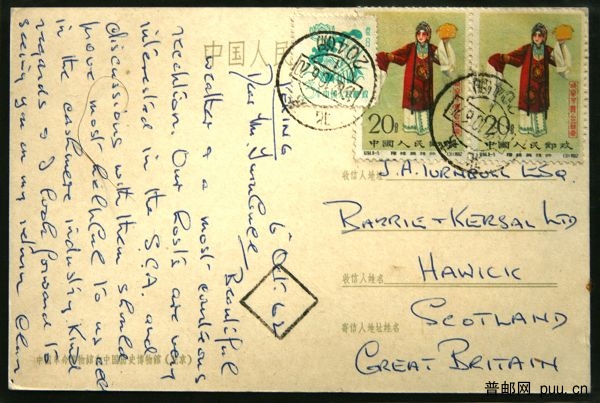 中国人民
20分
中国人民邮政
20分
中国人民邮政
PEKING
6 Oct. 62
Dear Mr. Turnbull
Beautiful
weather & a most courteous
reception. Our hosts are very
interested in the S.C.A. and
discussions with them should
prove most helpful to us all
in the cashmere industry. Kind
regards & I look forward to
seeing you on my return.
收信人地址
J.A. TURNBULL ESQ.
BARRIE + KERSAL LTD
收信人姓名
HAWICK
SCOTLAND
寄信人地址姓名
GREAT BRITAIN
中国革命博物館和中国历史博物館(北京)
普邮网 puu.cn